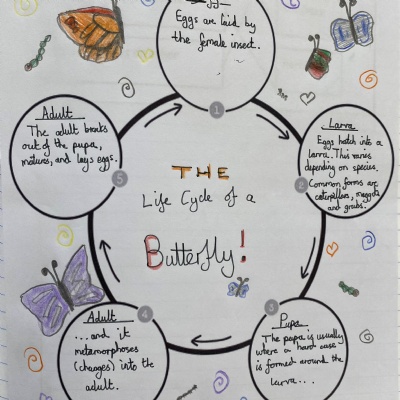 Egg
Eggs are laid by
the female insect.
1
Larva
Eggs hatch into a
larva. This varies
depending on species.
Common forms are
caterpillars, maggots
and grubs.
2
Pupa
The pupa is usually
where a hard case
is formed around the
larva...
3
Adult
...and it
metamorphoses
(changes) into the
adult.
4
Adult
The adult breaks
out of the pupa,
matures, and lays eggs.
5
THE
Life Cycle of a
Butterfly!